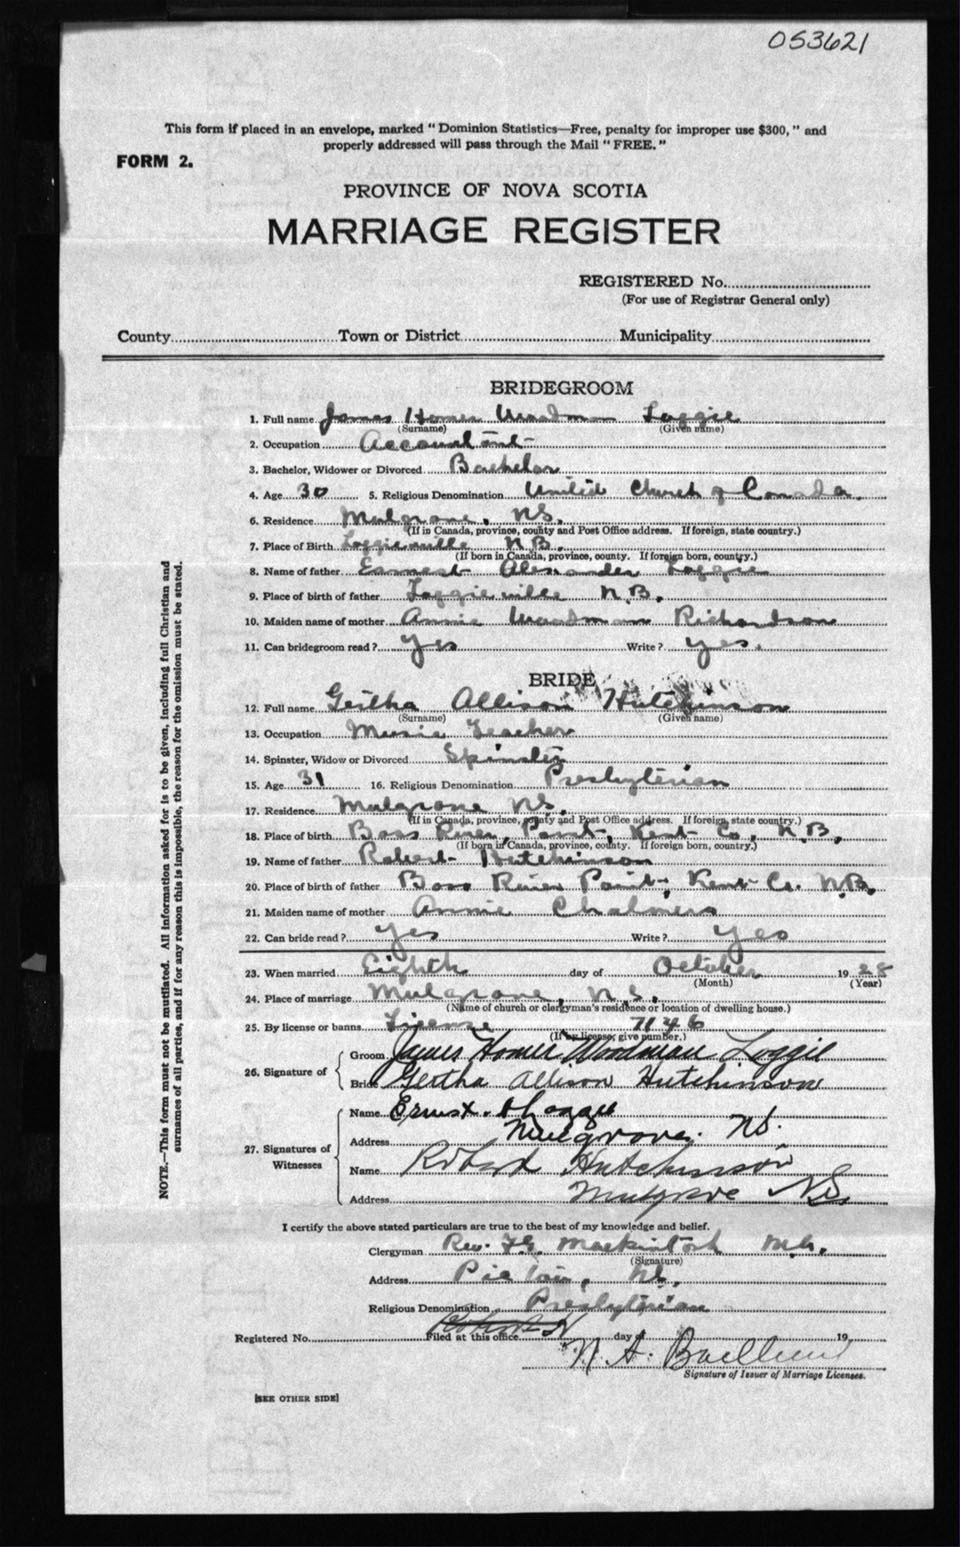 053621
This form if placed in an envelope, marked "Dominion Statistics—Free, penalty for improper use $300," and
properly addressed will pass through the Mail "FREE."
FORM 2.
PROVINCE OF NOVA SCOTIA
MARRIAGE REGISTER
REGISTERED No.
(For use of Registrar General only)
County Town or District Municipality
BRIDEGROOM
1. Full name James Homer Woodman Loggie
(Surname) (Given name)
2. Occupation Accountant
3. Bachelor, Widower or Divorced Bachelor
4. Age 30 5. Religious Denomination United Church of Canada.
6. Residence Mulgrave, N.S.
(If in Canada, province, county and Post Office address. If foreign, state country.)
7. Place of Birth Loggieville N.B.
(If born in Canada, province, county. If foreign born, country.)
8. Name of father Earnest Alexander Loggie
9. Place of birth of father Loggieville N.B.
10. Maiden name of mother Annie Woodman Richardson
11. Can bridegroom read? Yes Write? Yes.
BRIDE
12. Full name Gertha Allison Hutchinson
(Surname) (Given name)
13. Occupation Music Teacher
14. Spinster, Widow or Divorced Spinster
15. Age 31 16. Religious Denomination Presbyterian
17. Residence Mulgrave N.S.
(If in Canada, province, county and Post Office address. If foreign, state country.)
18. Place of birth Bass River, Point, Kent Co, N.B.
(If born in Canada, province, county. If foreign born, country.)
19. Name of father Robert Hutchinson
20. Place of birth of father Bass River Point, Kent Co. N.B.
21. Maiden name of mother Annie Chalmers
22. Can bride read? Yes Write? Yes
23. When married Eighth day of October 1928
(Month) (Year)
24. Place of marriage Mulgrave, N.S.
(Name of church or clergyman's residence or location of dwelling house.)
25. By license or banns License 7146
(If by license, give number.)
26. Signature of
Groom James Homer Woodman Loggie
Bride Gertha Allison Hutchinson
27. Signatures of Witnesses
Name Ernest Loggie
Address Mulgrave. N.S.
Name Robert Hutchinson
Address Mulgrave N.S.
I certify the above stated particulars are true to the best of my knowledge and belief.
Clergyman Rev. Mackintosh
(Signature)
Address Pictou, N.S.
Religious Denomination Presbyterian
Registered No. Filed at this office day of 19
N. A.
Signature of Issuer of Marriage Licenses.
[SEE OTHER SIDE]
NOTE.—This form must not be mutilated. All information asked for is to be given, including full Christian and
surnames of all parties, and if for any reason this is impossible, the reason for the omission must be stated.